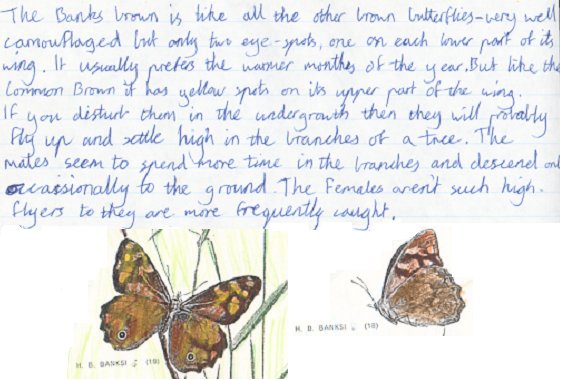 The Banks brown is like all the other brown butterflies - very well
camouflaged but only two eye-spots, one on each lower part of its
wing. It usually prefers the warmer months of the year. But like the
Common Brown it has yellow spots on its upper part of the wing.
If you disturb them in the undergrowth then they will probably
fly up and settle high in the branches of a tree. The
males seem to spend more time in the branches and descend onl
occassionally to the ground. The Females aren't such high.
flyers to they are more frequently caught.
H. B. BANKSI ♂ (1B)
H. B. BANKSI ♀ (1B)